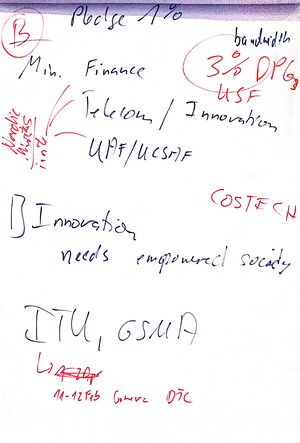 B
Pledge 1%
bandwidth
Min. Finance
3% DPGs
USF
Telecom / Innovation
UAF/UCSAF
COSTECH
Innovation
needs empowered society
ITU, GSMA
11-12 Feb Geneva DTC